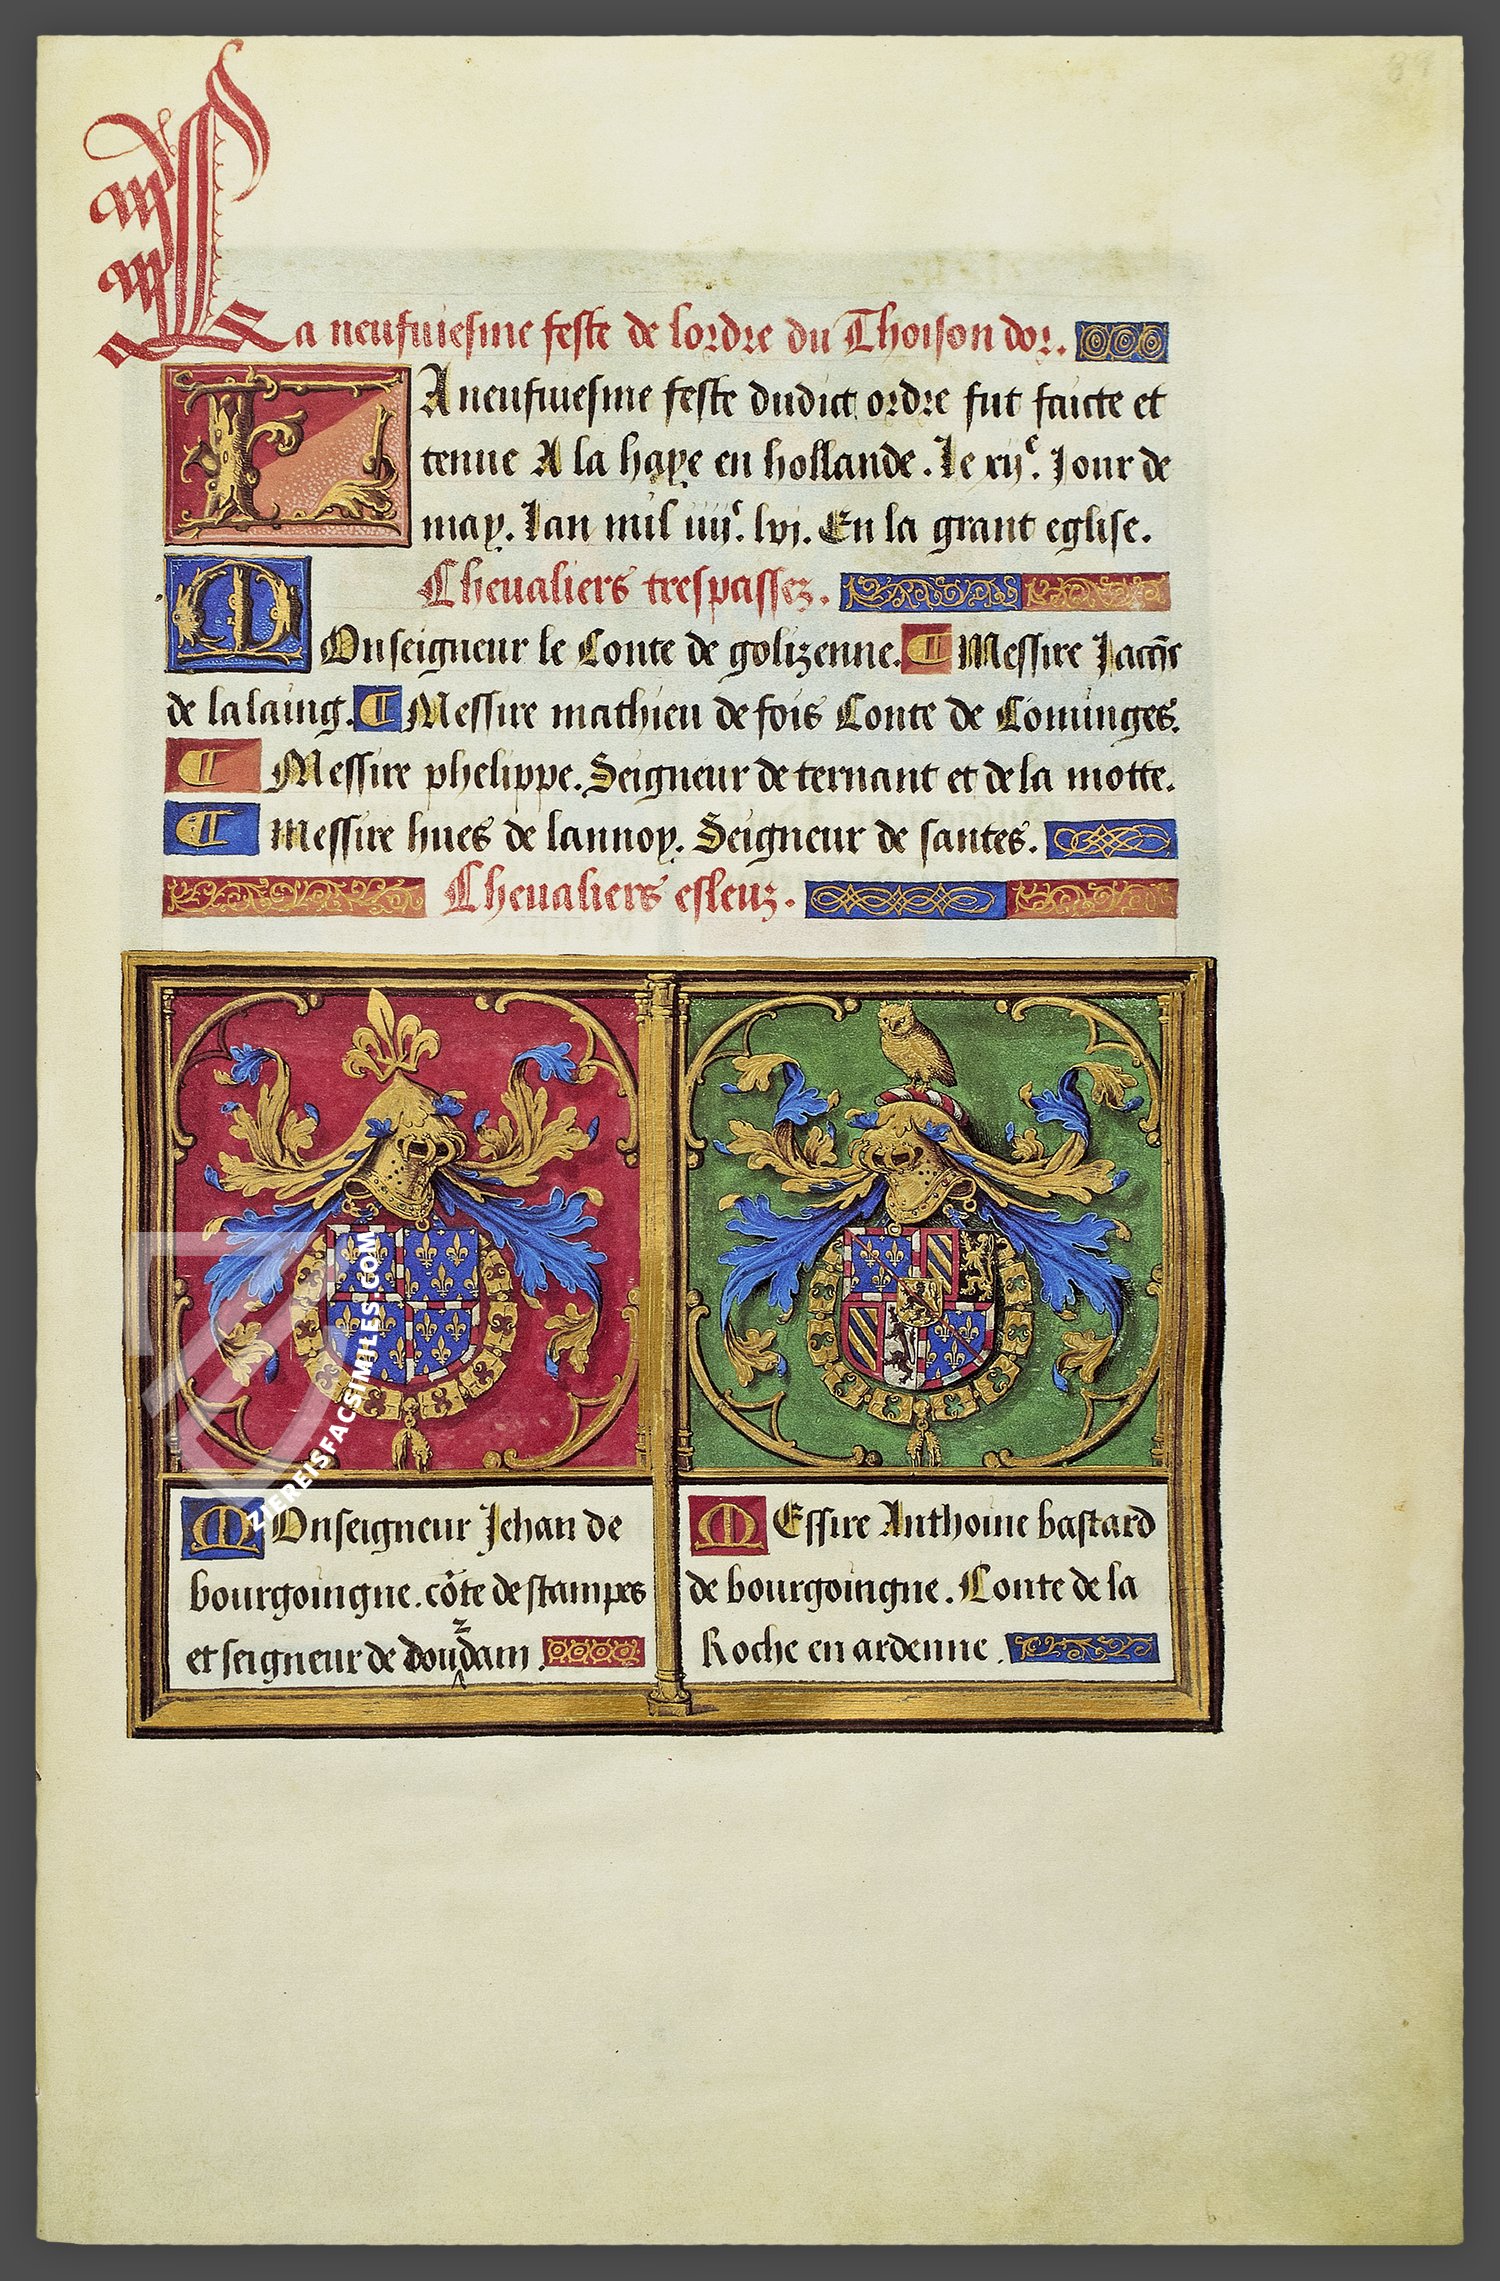 La neufuiesme feste de lordre du Thoison dor.
LA neufuiesme feste dudict ordre fut faicte et
tenue A la haye en hollande. Le xije. Jour de
may. Lan mil iiijc. lvj. En la grant eglise.
Chevaliers trespassez.
MOnseigneur le Conte de golizenne. Messire Jacques
de lalaing. Messire mathieu de fois Conte de Cominges.
Messire phelippe. Seigneur de ternant et de la motte.
Messire hues de lannoy. Seigneur de santes.
Chevaliers esleuz.
MOnseigneur Jehan de
bourgoingne. cõte de stampes
et seigneur de douzdam.
MEssire Anthoine bastard
de bourgoingne. Conte de la
Roche en ardenne.
ZIEREISFACSIMILES.COM